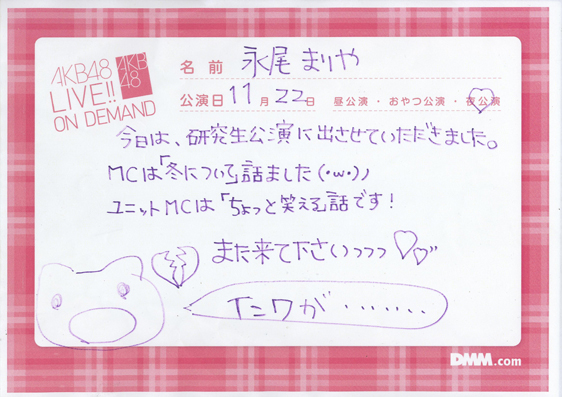 AKB48
LIVE!!
ON DEMAND
AKB
48
名前 永尾まりや
公演日 11月22日 昼公演・おやつ公演・夜公演
今日は、研究生公演に出させていただきました。
MCは「冬について」話ました(・ω・)ノ
ユニットMCは「ちょっと笑える話」です!
また来て下さいっっっ
DMM.com